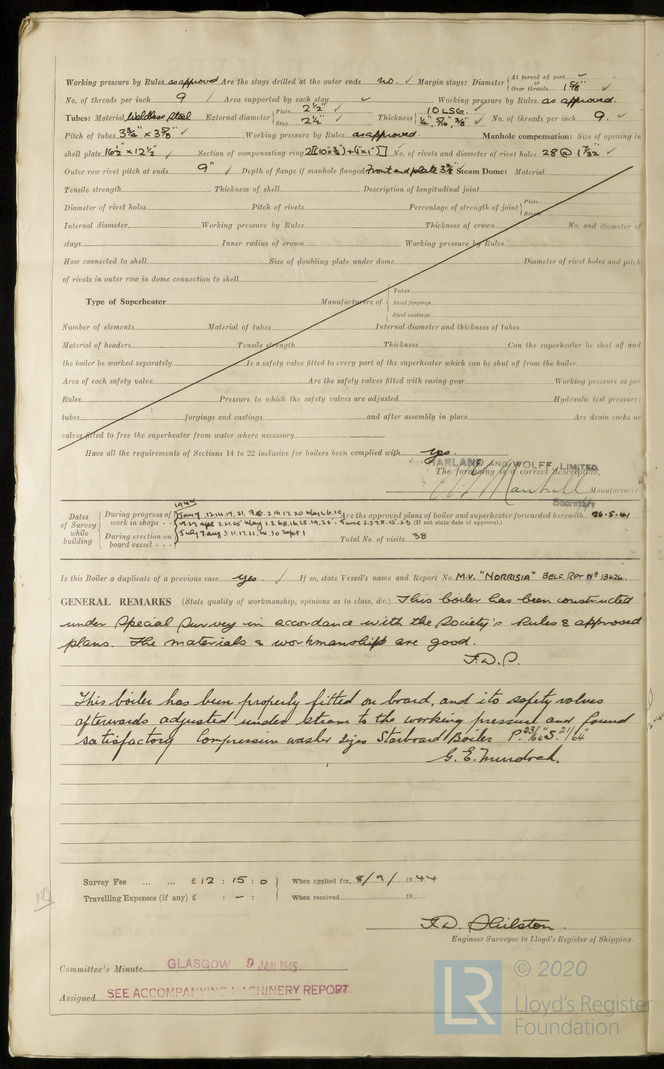 Working pressure by Rules as approved Are the stays drilled at the outer ends no. ✓ Margin stays: Diameter { At turned off part ✓ or Over threads 1 5/8" ✓
No. of threads per inch 9 / Area supported by each stay ✓ Working pressure by Rules as approved.
Tubes: Material Weldless Steel External diameter { Plain 2 1/2" ✓ Stay 2 1/2" ✓ Thickness { 10 LSG. ✓ 1/4", 5/16", 3/8" ✓ No. of threads per inch 9. ✓
Pitch of tubes 3 3/4" x 3 5/8" ✓ Working pressure by Rules as approved. Manhole compensation: Size of opening in
shell plate 16 1/2" x 12 1/2" / Section of compensating ring No. of rivets and diameter of rivet holes 28 @ 1 7/32" ✓
Outer row rivet pitch at ends 9" ✓ Depth of flange if manhole flanged Front end plate Steam Dome: Material
Tensile strength Thickness of shell Description of longitudinal joint
Diameter of rivet holes Pitch of rivets Percentage of strength of joint { Plate Rivets
Internal diameter Working pressure by Rules Thickness of crown No. and diameter of
stays Inner radius of crown Working pressure by Rules
How connected to shell Size of doubling plate under dome Diameter of rivet holes and pitch
of rivets in outer row in dome connection to shell
Type of Superheater Manufacturers of { Tubes Steel forgings Steel castings
Number of elements Material of tubes Internal diameter and thickness of tubes
Material of headers Tensile strength Thickness Can the superheater be shut off and
the boiler be worked separately Is a safety valve fitted to every part of the superheater which can be shut off from the boiler
Area of each safety valve Are the safety valves fitted with easing gear Working pressure as per
Rules Pressure to which the safety valves are adjusted Hydraulic test pressure:
tubes forgings and castings and after assembly in place Are drain cocks or
valves fitted to free the superheater from water where necessary
Have all the requirements of Sections 14 to 22 inclusive for boilers been complied with yes.
HARLAND AND WOLFF, LIMITED
The foregoing is a correct description,
Marshall Manufacturer
Secretary
1944
Dates of Survey while building { During progress of work in shops - - Are the approved plans of boiler and superheater forwarded herewith 26.5.41
(If not state date of approval.)
During erection on board vessel - - - Total No. of visits 38
Is this Boiler a duplicate of a previous case yes. / If so, state Vessel's name and Report No. M.V. "NORRISIA" BELF. RPT Nº 13626.
GENERAL REMARKS (State quality of workmanship, opinions as to class, &c.) This boiler has been constructed
under special survey in accordance with the Society's Rules & approved
plans. The materials & workmanship are good.
F.D.S.
This boiler has been properly fitted on board, and its safety valves
afterwards adjusted under steam to the working pressure and found
satisfactory Compression washer sizes Starboard Boiler P. 23/64" S. 21/64"
G. E. Murdoch.
Survey Fee ... ... £12 : 15 : 0 When applied for 8/9/ 1944
Travelling Expenses (if any) £ : - : When received 19
F.D. Shilston.
Engineer Surveyor to Lloyd's Register of Shipping.
Committee's Minute GLASGOW 9 JAN 1945
Assigned SEE ACCOMPANYING MACHINERY REPORT.
LR
© 2020
Lloyd's Register
Foundation